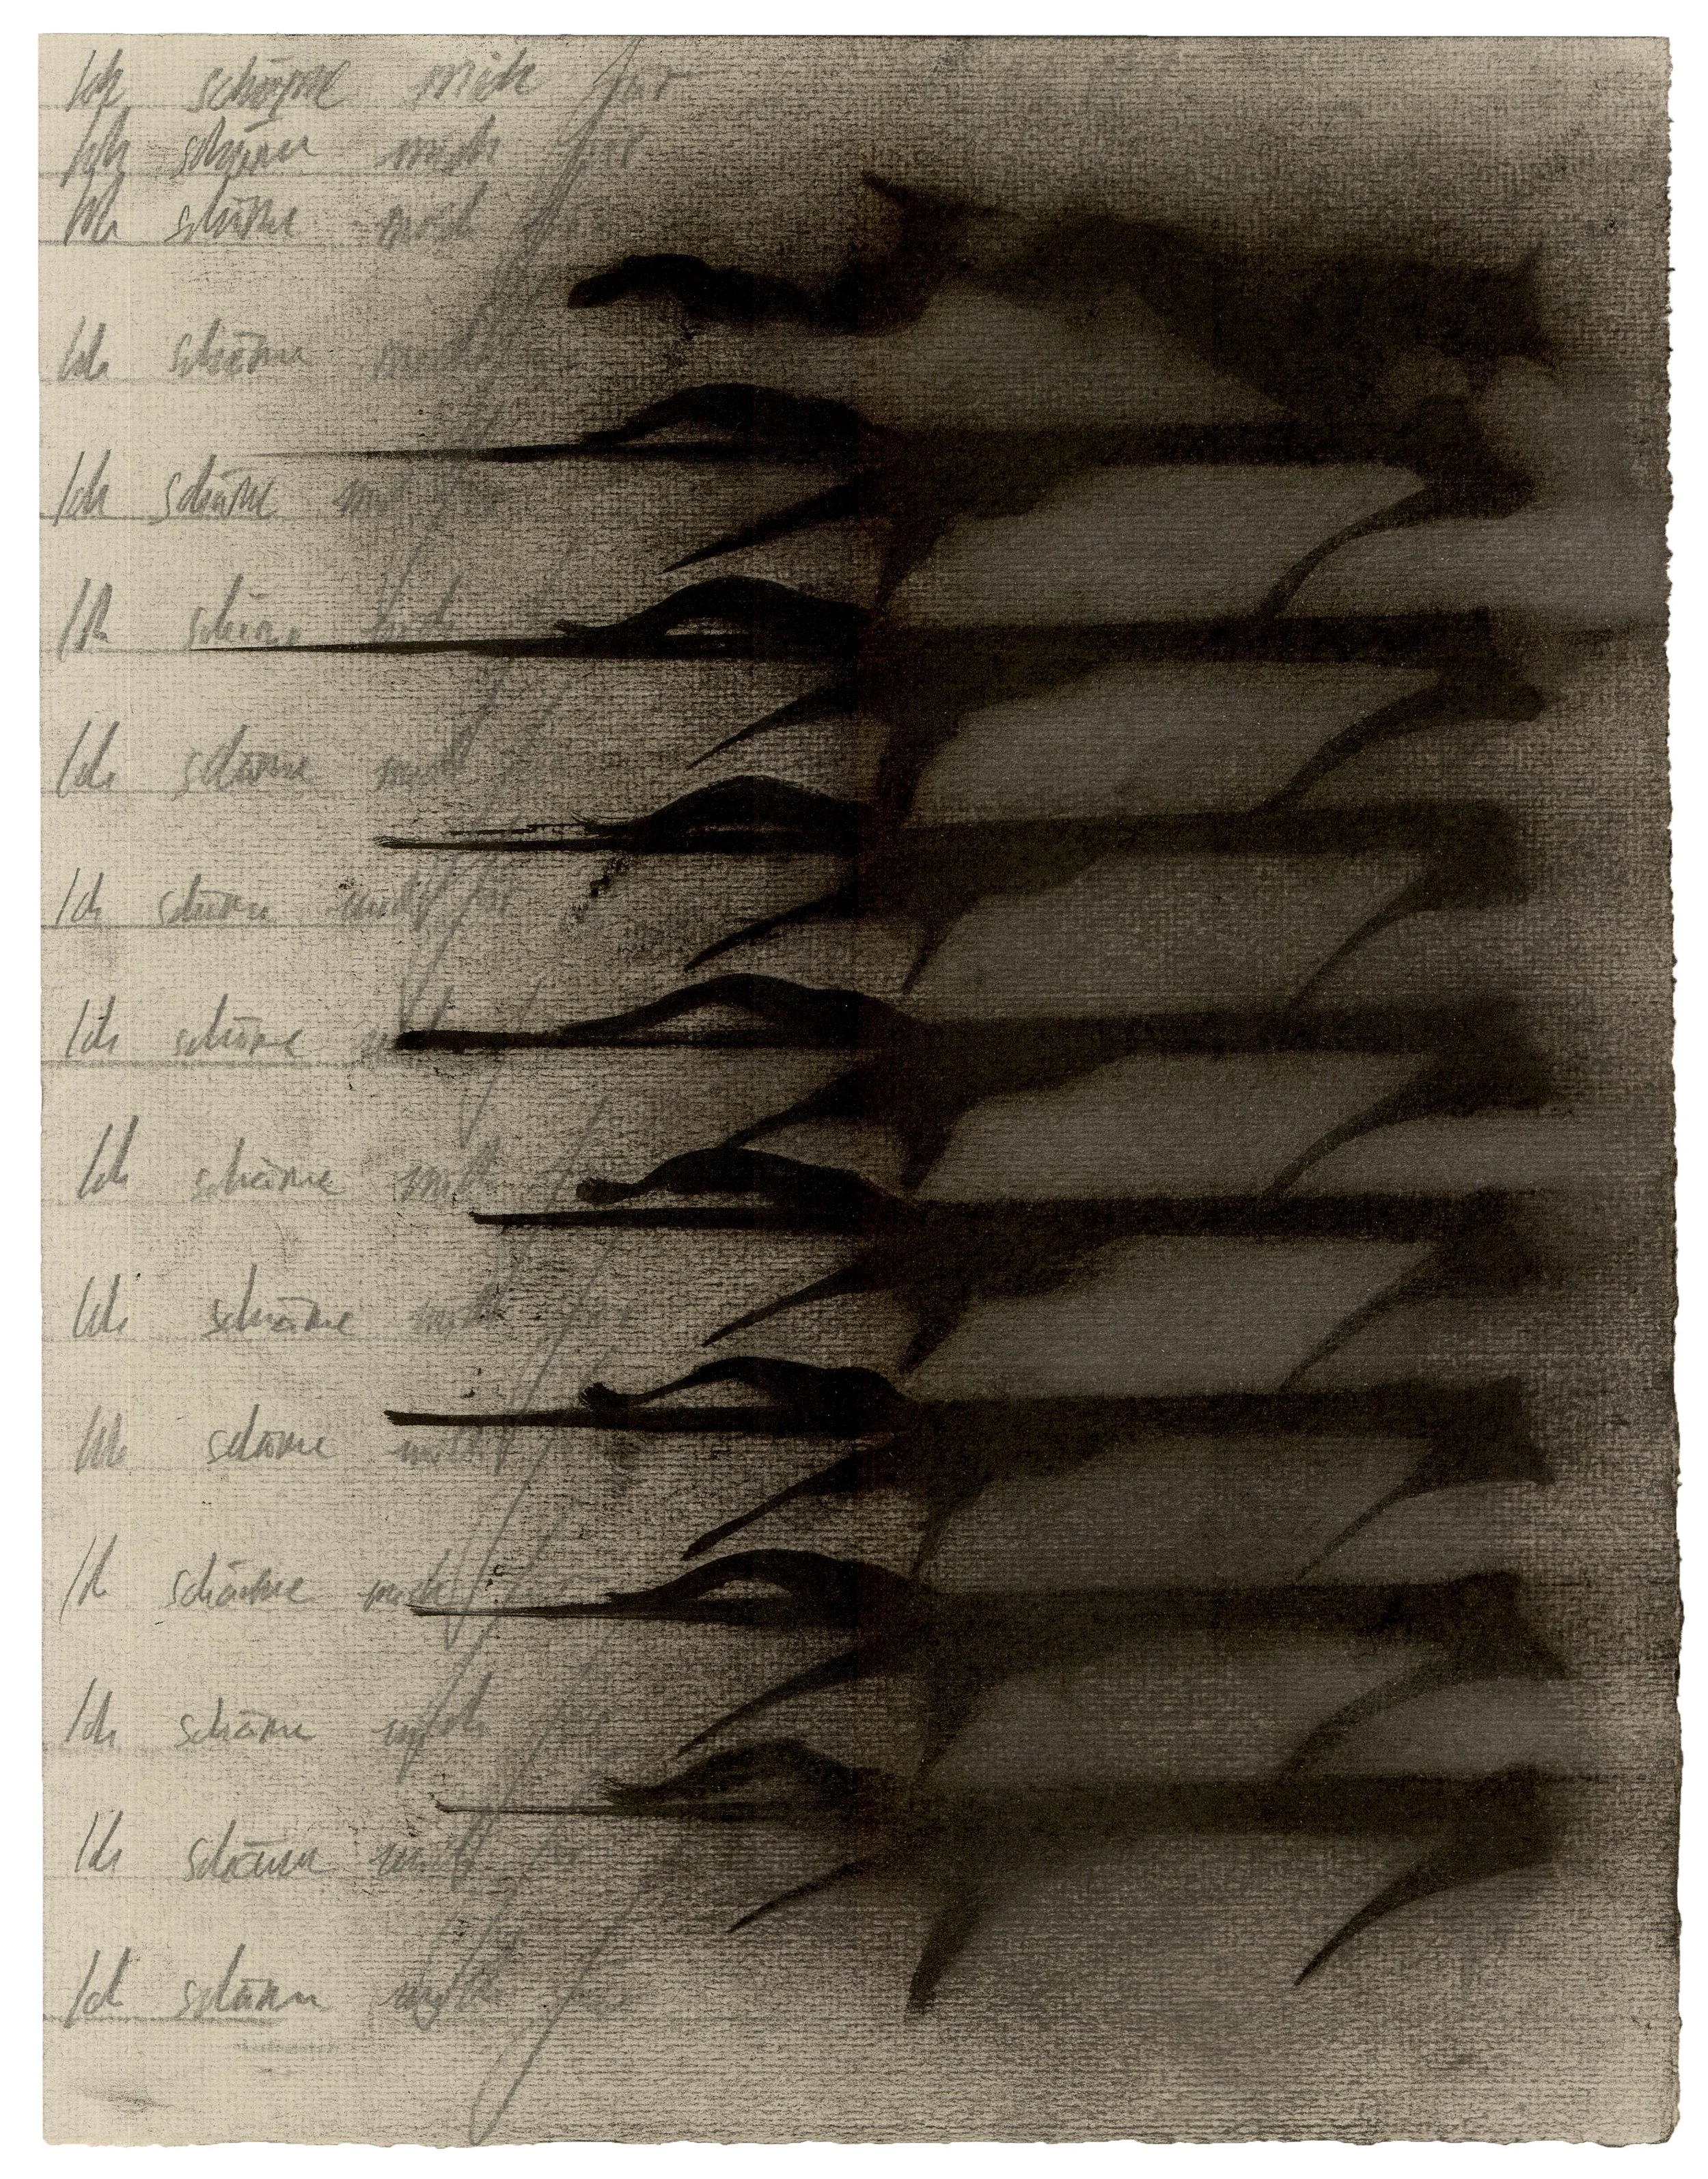 Ich schäme mich für
Ich schäme mich für
Ich schäme mich für
Ich schäme mich
Ich schäme
Ich schäme mich
Ich schäme mich
Ich schäme mich für
Ich schäme
Ich schäme mich
Ich schäme mich für
Ich schäme mich
Ich schäme mich für
Ich schäme mich für
Ich schäme mich für
Ich schäme mich für